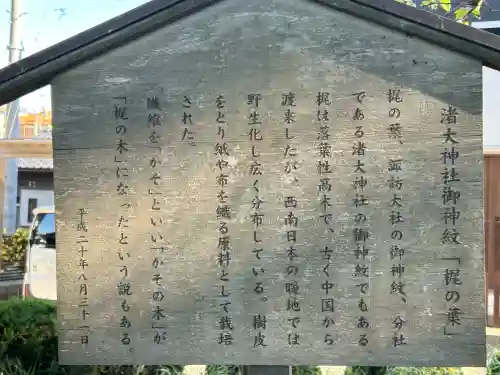 渚大神社御神紋「梶の葉」
梶の葉、諏訪大社の御神紋、分社
である渚大神社の御神紋でもある
梶は落葉性高木で、古く中国から
渡来したが、西南日本の暖地では
野生化し広く分布している。樹皮
をとり紙や布を織る原料として栽培
された。
繊維を「かそ」といい、「かその木」が
「梶の木」になったという説もある。
平成二十年八月三十一日